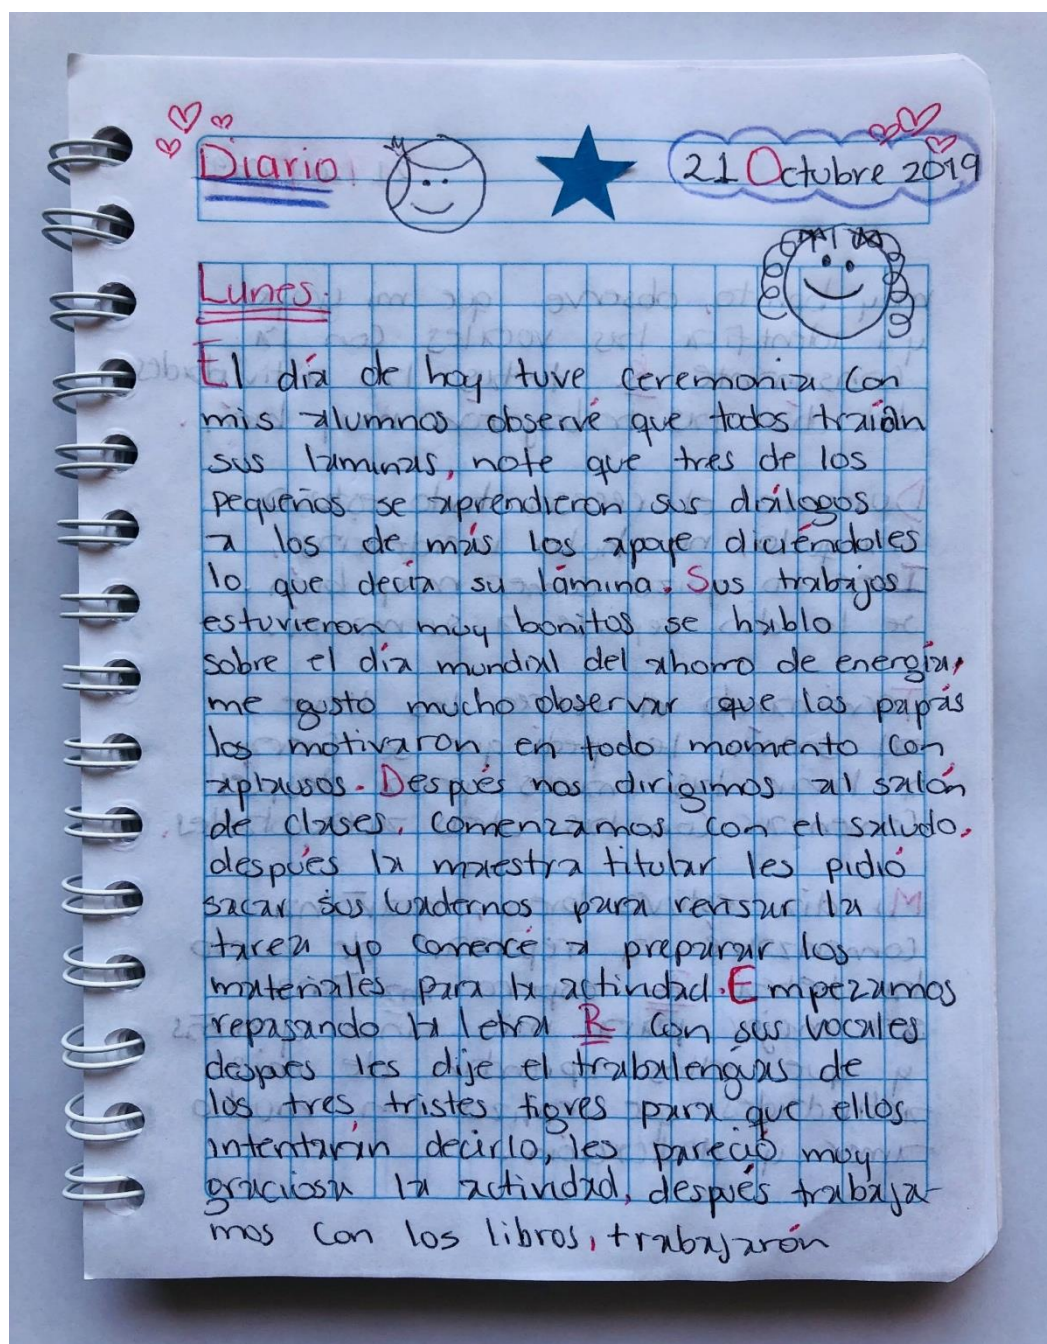 Diario
21 Octubre 2019
Lunes.
El día de hoy tuve ceremonia con
mis alumnos observé que todos traían
sus laminas, note que tres de los
pequeños se aprendieron sus diálogos
a los de más los apoye diciéndoles
lo que decía su lámina. Sus trabajos
estuvieron muy bonitos se hablo
sobre el día mundial del ahorro de energía,
me gusto mucho observar que los papás
los motivaron en todo momento con
aplausos. Después nos dirigimos al salón
de clases, comenzamos con el saludo,
después la maestra titular les pidió
sacar sus cuadernos para revisar la
tarea yo comencé a preparar los
materiales para la actividad. Empezamos
repasando la letra R con sus vocales
después les dije el trabalenguas de
los tres tristes tigres para que ellos
intentarán decirlo, les pareció muy
graciosa la actividad, después trabaja-
mos con los libros, trabajarón